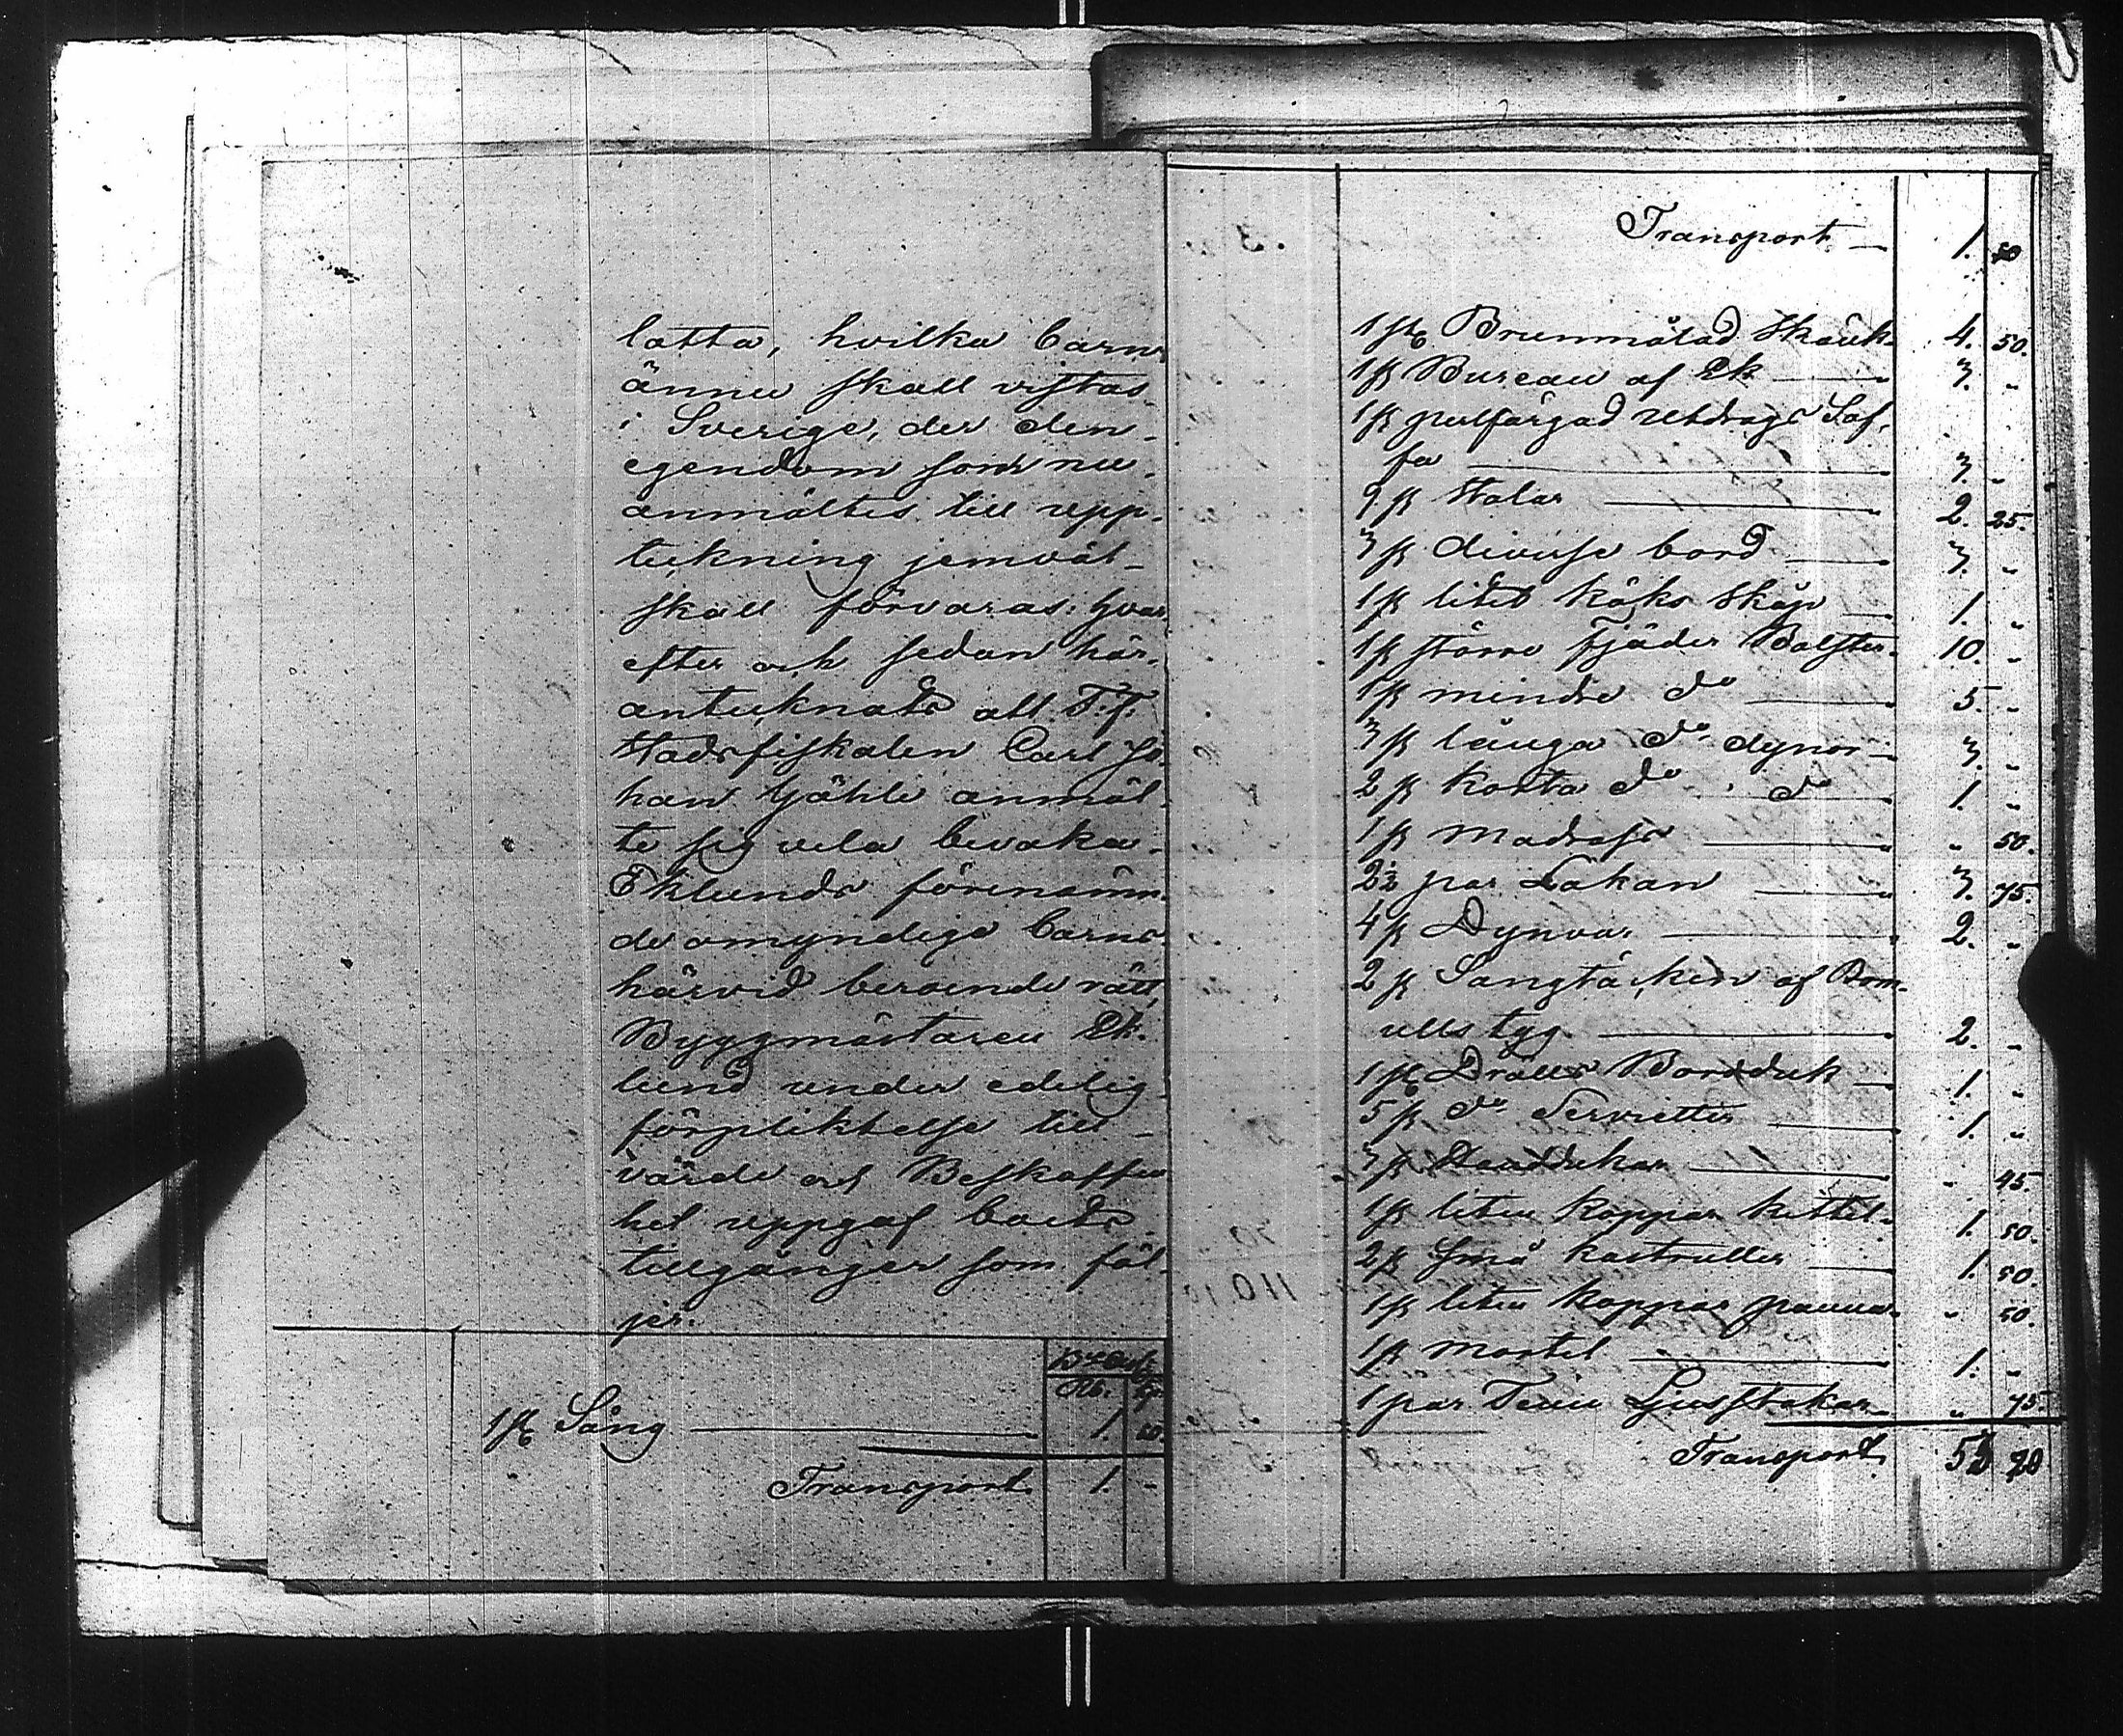 latta, hvilka barn
ännu skall vistas
i Sverige, der den
egendom som nu
anmältes till upp-
teckning jemväl
skall förvaras: hvar
efter och sedan här
antecknats att T. f.
Stadsfiskalen Carl Jo
han Gåhle anmäl-
te sig vela bevaka
Eklunds förenämn
de omyndiga barns
härvid beroende rätt,
Byggmästaren Ek-
lund under edelig
förpliktelse till
värde och Beskaffen
het uppgaf boets
tillgånger som föl-
jer.
Rb.
1 st Säng 1.
Transport. 1. -
Transport 1. 50
1 st Brunmålad Skänk 4. 50.
1 st Bureau af Ek 3. "
1 st perlfärgad utdrags Sof
fa 3. "
9 st Stolar 2. 25.
3 st diverse bord 3. "
1 st litet köks Skåp 1. "
1 st större Fjäder Bolster 10. "
1 st mindre do 5. "
3 st långa do dynor 3. "
2 st korta do do 1. "
1 st Madrass " 50.
2½ par Lakan 3. 75.
4 st Dynvar 2. "
2 st Sängtäcken af Bom-
ulls tyg 2. "
1 st Dräll Bordduk 1. "
5 st do Servietter 1. "
3 st Handdukar " 45.
1 st liten koppar kettel 1. 50.
2 st Små kastruller 1. 50.
1 st liten koppar panna " 50.
1 st Mortel 1. "
1 par Tenn Ljusstakar " 75
Transport